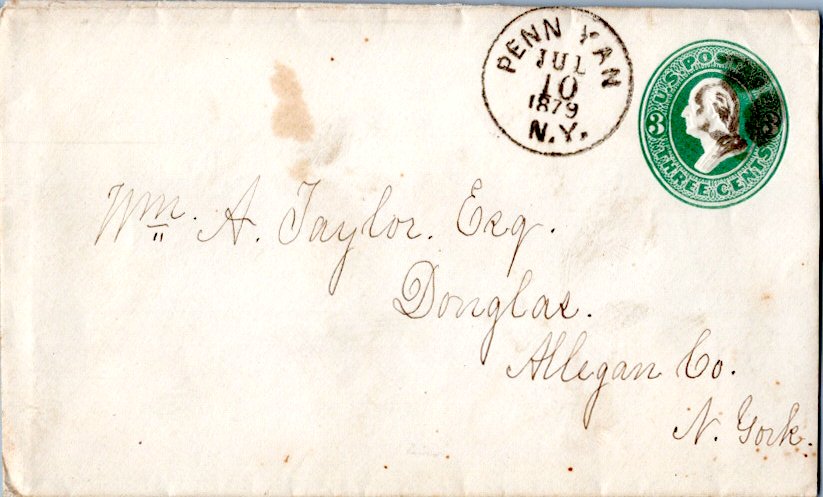 PENN YAN
JUL
10
1879
N.Y.
U.S. POSTAGE
3
THREE CENTS
Wm. A. Taylor. Esq.
Douglas.
Allegan Co.
N. York.